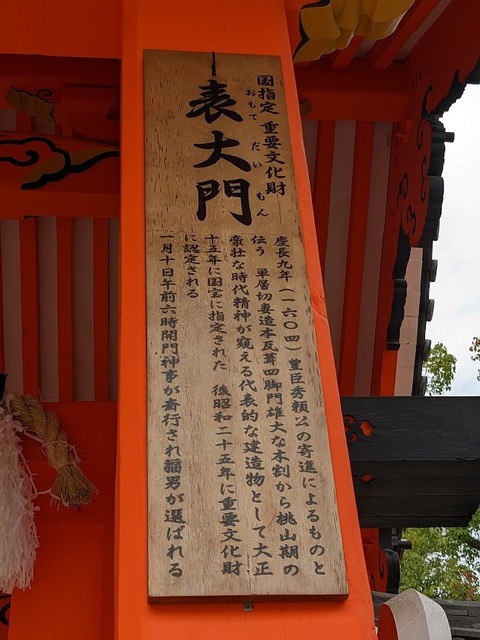 国指定 重要文化財
表大門
おもて だい もん
慶長九年(一六〇四)豊臣秀頼公の寄進によるものと
伝う 単層切妻造本瓦葺四脚門雄大な木割から桃山期の
豪壮な時代精神が窺える代表的な建造物として大正
十五年に国宝に指定された 後昭和二十五年に重要文化財
に認定される
一月十日午前六時開門神事が斎行され福男が選ばれる